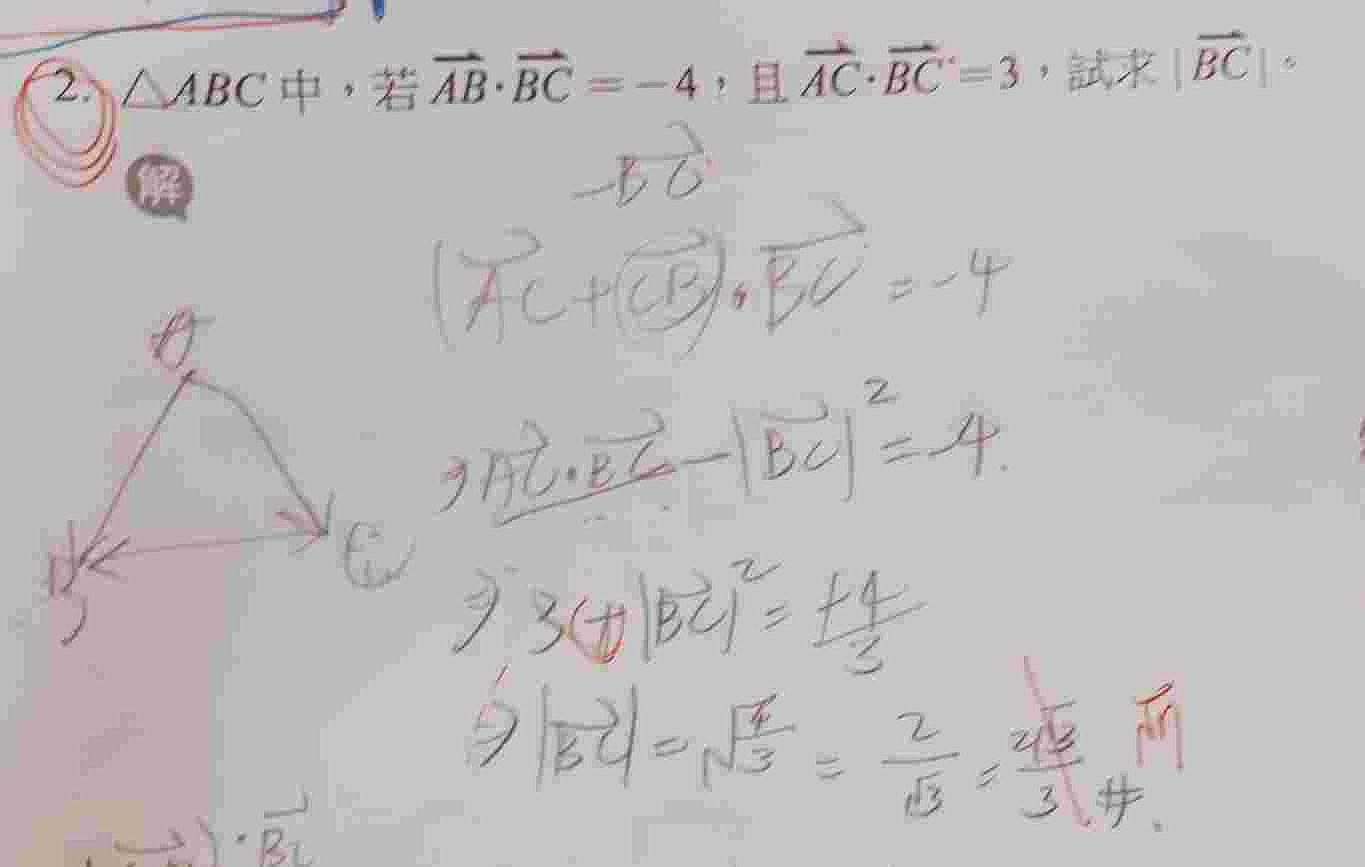 2. △ABC 中，若 $\overrightarrow{AB}\cdot\overrightarrow{BC}$ = −4，且 $\overrightarrow{AC}\cdot\overrightarrow{BC}$ = 3，試求 |$\overrightarrow{BC}$|。
解
$-\overrightarrow{BC}$
$(\overrightarrow{AC}+\overrightarrow{CB})\cdot\overrightarrow{BC}=-4$
A
⇒ $\overrightarrow{AC}\cdot\overrightarrow{BC}-|\overrightarrow{BC}|^2=-4.$
C
⇒ $|\overrightarrow{BC}|=\sqrt{\frac{4}{3}}=\frac{2}{\sqrt{3}}=\frac{2\sqrt{3}}{3}$ #.
$)\cdot\overrightarrow{BC}$